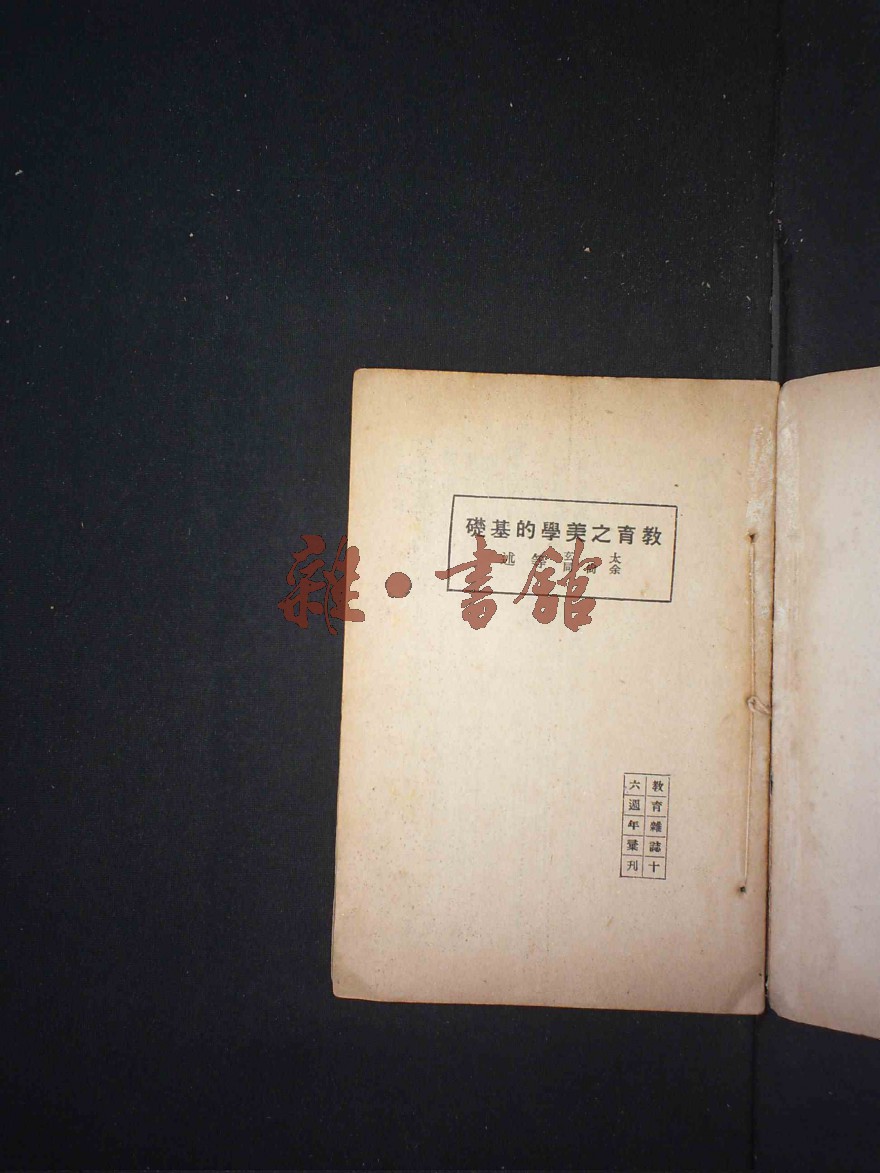 教育之美學的基礎
太玄
余尚同
等述
教育雜誌十
六週年彙刊
雜·書館